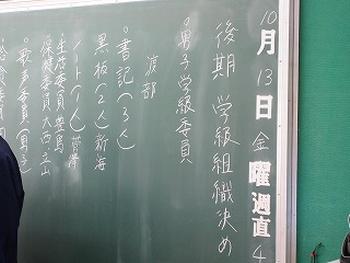 10月13日金曜週直4
後期 学級組織決め
○男子学級委員
渡部
○書記(3人)
黒板(2人)新海
ノート(1人)菅岸
生活委員 豊島
保健委員 大西・立山
○歌声委員(男子)